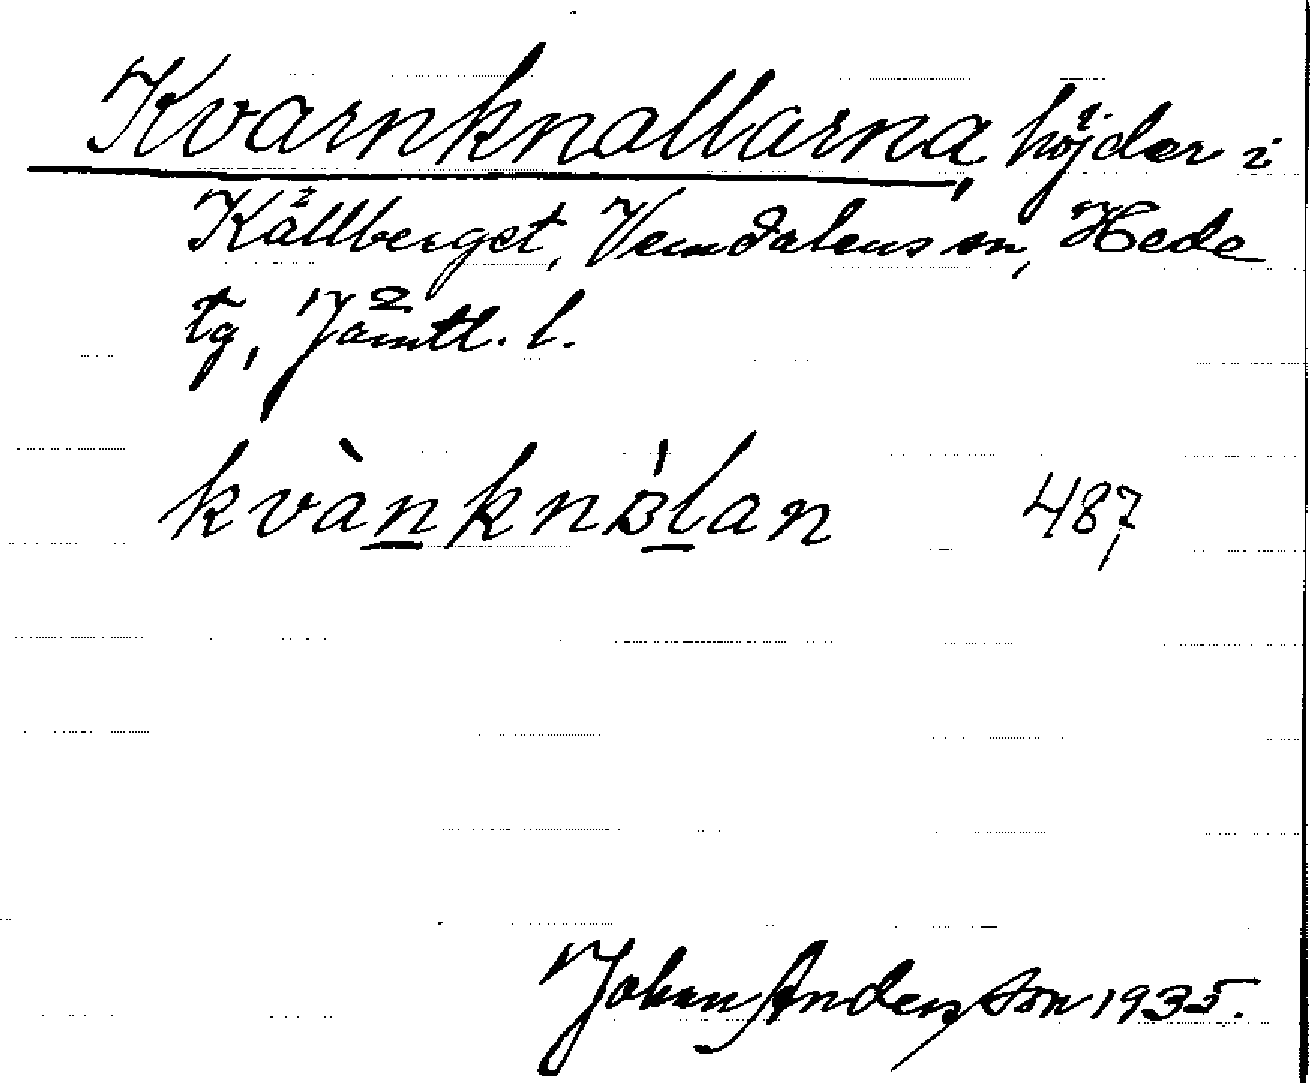 Kvarnknallarna, höjder i
Källberget, Vemdalens sn, Hede
tg, Jämtl. l.
kvàn̲knʙ́l̲an 487
Johan Andersson 1935.